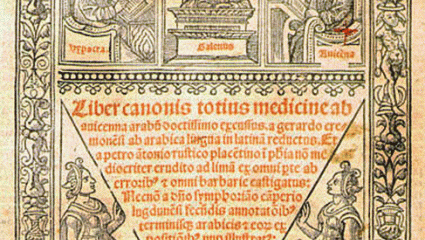 Ypocra. Galenus Auicēna
Liber canonis totius medicine ab
auicenna arabū doctissimo excussus, a gerardo cre
monēsi ab arabica lingua in latinā reductus. Et
a petro ātonio rustico placētino ī phīa nō me
diocriter erudito ad limā ex omni pte ab
erroribꝰ & omni barbarie castigatus:
Necnō a dño symphoriāo cāperio
lugdunēsi fecūdis annotatōibꝰ
terminisq; arabicis & eoꝝ ex
positiōibꝰ nup illustratꝰ.